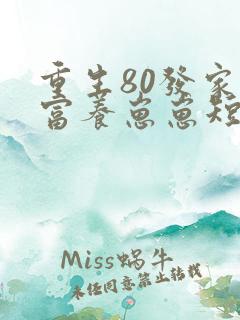 重生80發家
富養崽崽短
Miss蜗牛
未经同意禁止转载